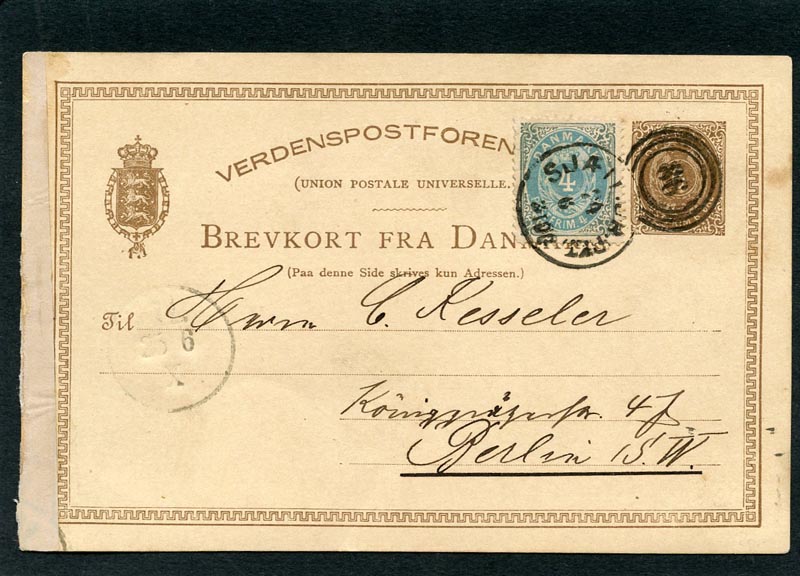 VERDENSPOSTFOREN
(UNION POSTALE UNIVERSELLE.
BREVKORT FRA DAN
(Paa denne Side skrives kun Adressen.)
DANMARK
4
Til Herrn C. Kesseler
6
Königgrätzerstr. 47
Berlin S.W.